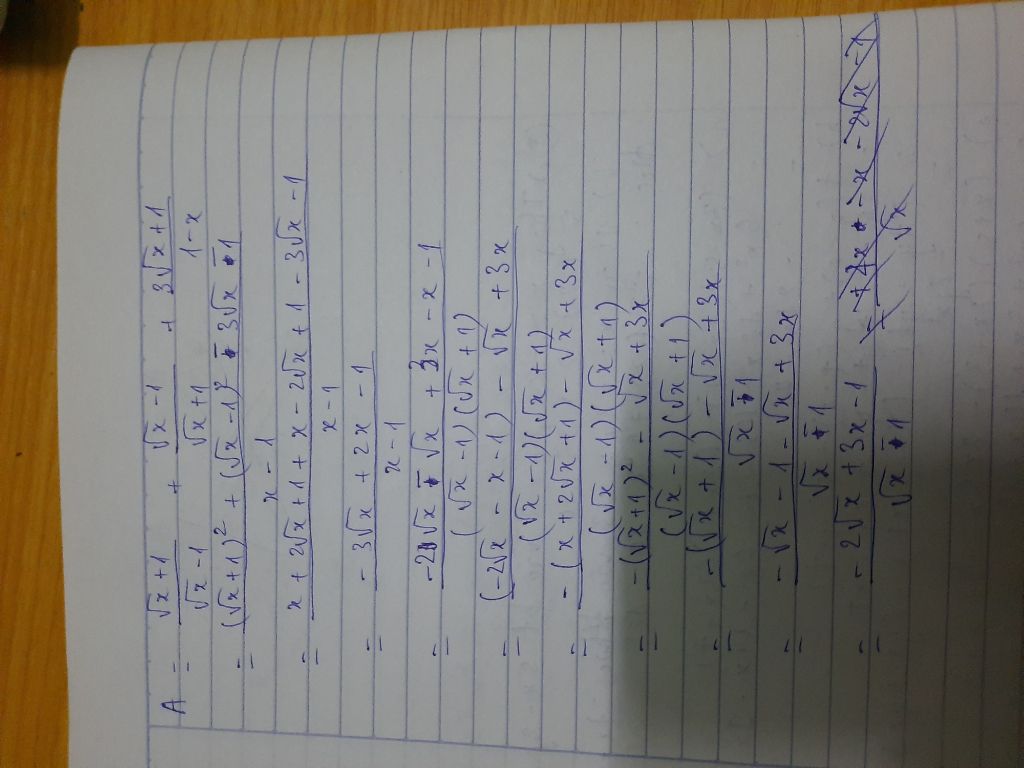 A = (√x + 1)/(√x - 1) + (√x - 1)/(√x + 1) + (3√x + 1)/(1 - x)
= ((√x + 1)² + (√x - 1)² - 3√x - 1)/(x - 1)
= (x + 2√x + 1 + x - 2√x + 1 - 3√x - 1)/(x - 1)
= (-3√x + 2x - 1)/(x - 1)
= (-2√x - √x + 3x - x - 1)/((√x - 1)(√x + 1))
= ((-2√x - x - 1) - √x + 3x)/((√x - 1)(√x + 1))
= (-(x + 2√x + 1) - √x + 3x)/((√x - 1)(√x + 1))
= (-(√x + 1)² - √x + 3x)/((√x - 1)(√x + 1))
= (-(√x + 1) - √x + 3x)/(√x - 1)
= (-√x - 1 - √x + 3x)/(√x - 1)
= (-2√x + 3x - 1)/(√x - 1)